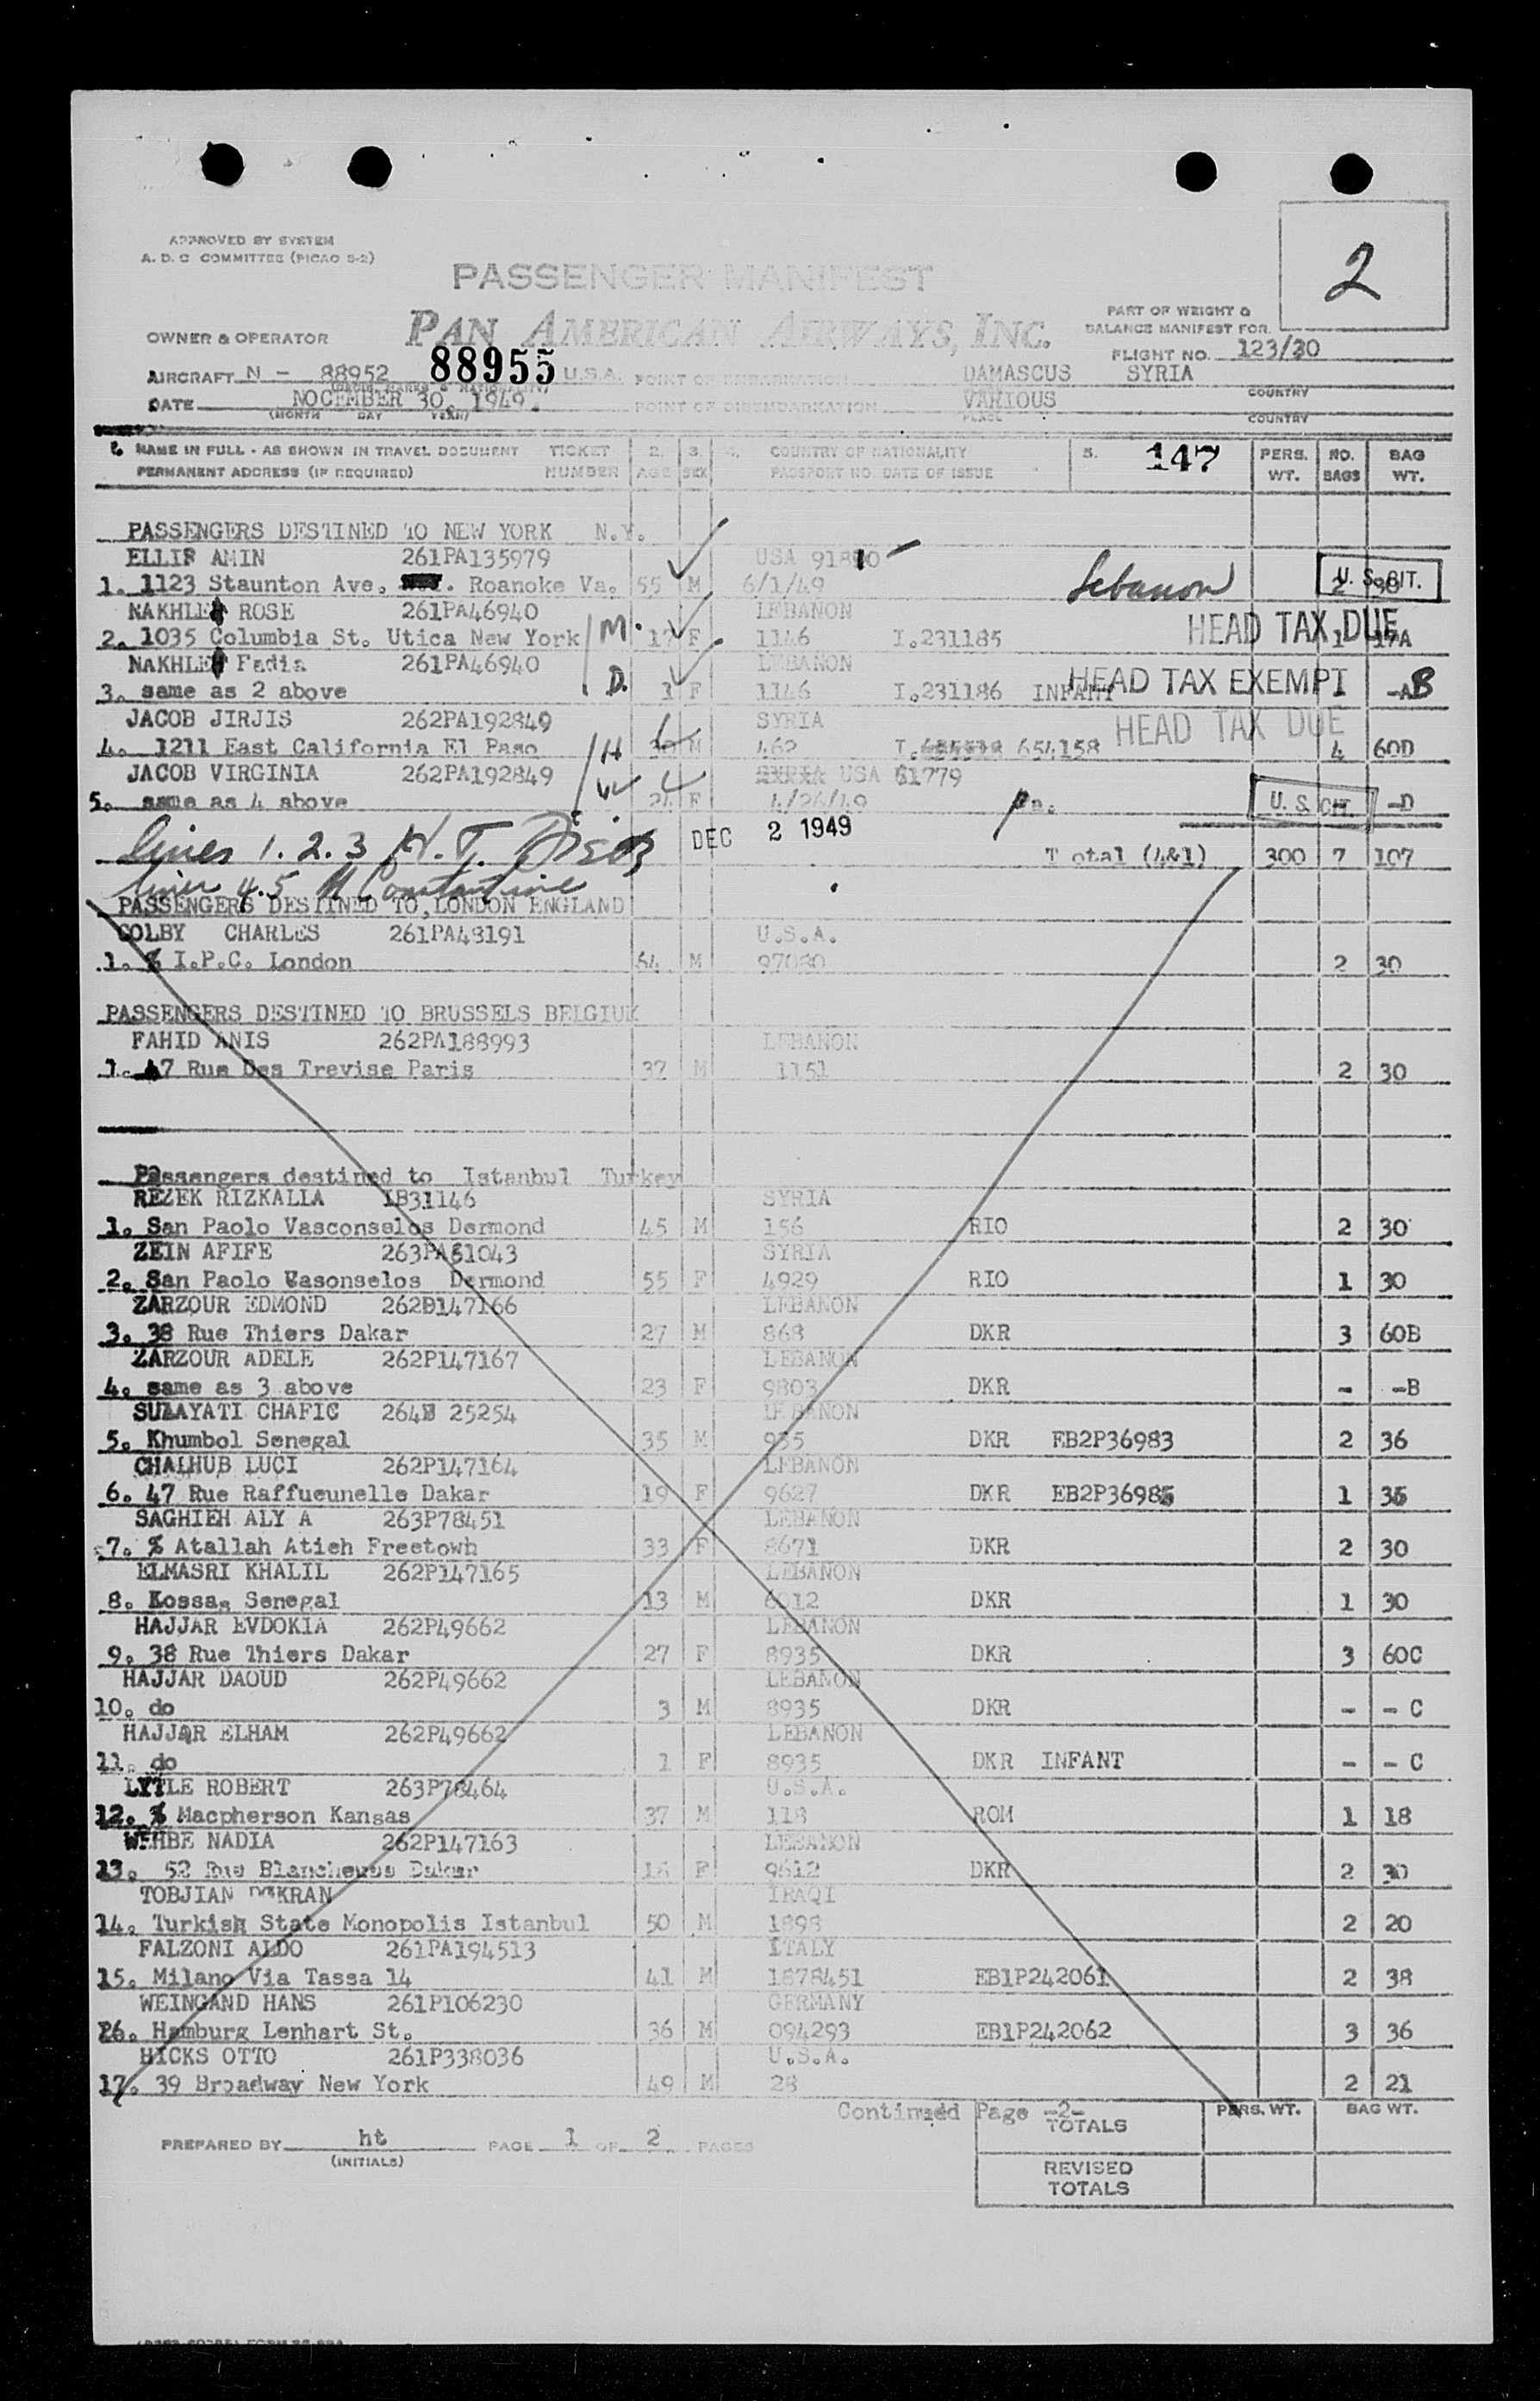 APPROVED BY SYSTEM
A. D. C COMMITTEE (PICAO S-2)
2
PASSENGER MANIFEST
PAN AMERICAN AIRWAYS, INC.
PART OF WEIGHT &
BALANCE MANIFEST FOR
OWNER & OPERATOR
FLIGHT NO. 123/30
AIRCRAFT N - 88952 88955 U.S.A. POINT OF EMBARKATION DAMASCUS SYRIA
DATE NOCEMBER 30, 1949. POINT OF DISEMBARKATION VARIOUS
(MONTH DAY YEAR) PLACE COUNTRY
COUNTRY
NAME IN FULL - AS SHOWN IN TRAVEL DOCUMENT TICKET 2. 3. 4. COUNTRY OF NATIONALITY 5. 147 PERS. NO. BAG
PERMANENT ADDRESS (IF REQUIRED) NUMBER AGE SEX PASSPORT NO. DATE OF ISSUE WT. BAGS WT.
PASSENGERS DESTINED TO NEW YORK N.Y.
ELLIS AMIN 261PA135979 USA
1. 1123 Staunton Ave. Roanoke Va. 55 M 6/1/49 Lebanon U. S. CIT. 2
NAKHLE ROSE 261PA46940 LEBANON
2. 1035 Columbia St. Utica New York M. 17 F 1146 I.231185 HEAD TAX DUE 1 17A
NAKHLE Fadia 261PA46940 LEBANON
3. same as 2 above D. 1 F 1146 I.231186 INFANT HEAD TAX EXEMPT -AB
JACOB JIRJIS 262PA192849 SYRIA
4. 1211 East California El Paso H M 462 I. 654158 HEAD TAX DUE 4 60D
JACOB VIRGINIA 262PA192849 USA 61779
5. same as 4 above W 24 F 4/26/49 Pa. U. S. CIT. -D
lines 1. 2. 3 H. T. DEC 2 1949
Total (4&1) 300 7 107
lines 4. 5 M Constantine
PASSENGERS DESTINED TO, LONDON ENGLAND
COLBY CHARLES 261PA48191 U.S.A.
1. % I.P.C. London 54 M 97080 2 30
PASSENGERS DESTINED TO BRUSSELS BELGIUM
FAHID ANIS 262PA188993 LEBANON
1. 47 Rue Des Trevise Paris 37 M 1151 2 30
Passengers destined to Istanbul Turkey
REZEK RIZKALLA IB31146 SYRIA
1. San Paolo Vasconselos Dermond 45 M 156 RIO 2 30
ZEIN AFIFE 263PA81043 SYRIA
2. San Paolo Vasonselos Dermond 55 F 4929 RIO 1 30
ZARZOUR EDMOND 262P147166 LEBANON
3. 38 Rue Thiers Dakar 27 M 868 DKR 3 60B
ZARZOUR ADELE 262P147167 LEBANON
4. same as 3 above 23 F 9803 DKR - -B
SULAYATI CHAFIC 264 25254 LEBANON
5. Khumbol Senegal 35 M 935 DKR EB2P36983 2 36
CHALHUB LUCI 262P147164 LEBANON
6. 47 Rue Raffueunelle Dakar 19 F 9627 DKR EB2P36985 1 35
SAGHIEH ALY A 263P78451 LEBANON
7. % Atallah Atieh Freetown 33 F 8671 DKR 2 30
ELMASRI KHALIL 262P147165 LEBANON
8. Kossas Senegal 13 M 6012 DKR 1 30
HAJJAR EVDOKIA 262P49662 LEBANON
9. 38 Rue Thiers Dakar 27 F 8935 DKR 3 60C
HAJJAR DAOUD 262P49662 LEBANON
10. do 3 M 8935 DKR - - C
HAJJAR ELHAM 262P49662 LEBANON
11. do 1 F 8935 DKR INFANT - - C
LYTLE ROBERT 263P78464 U.S.A.
12. % Macpherson Kansas 37 M 118 ROM 1 18
WEHBE NADIA 262P147163 LEBANON
13. 52 Rue Blancheuss Dakar F 9612 DKR 2 30
TOBJIAN IRAQI
14. Turkish State Monopolis Istanbul 50 M 1898 2 20
FALZONI ALDO 261PA194513 ITALY
15. Milano Via Tassa 14 41 M 1878451 EB1P242061 2 38
WEINGAND HANS 261P106230 GERMANY
16. Hamburg Lenhart St. 36 M 094293 EB1P242062 3 36
HICKS OTTO 261P338036 U.S.A.
17. 39 Broadway New York 49 M 28 2 21
Continued Page -2-
TOTALS PERS. WT. BAG WT.
PREPARED BY ht PAGE 1 OF 2 PAGES
(INITIALS)
REVISED
TOTALS